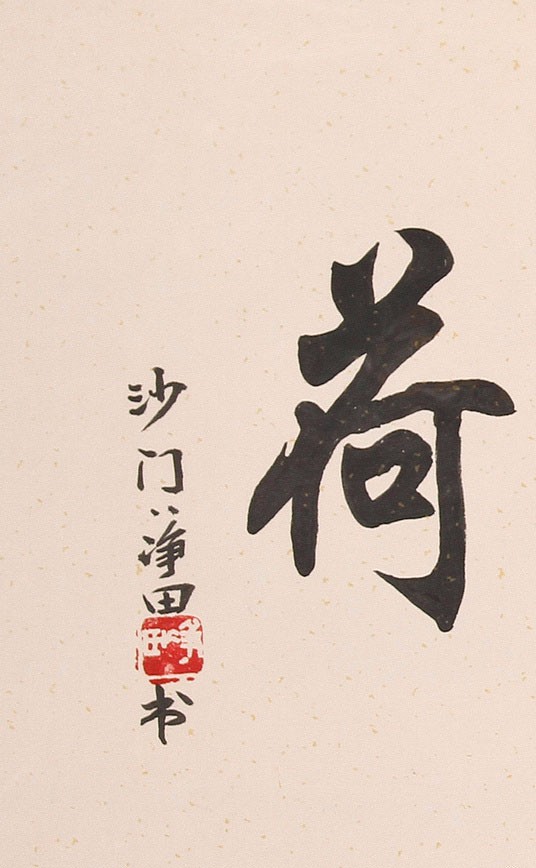 荷
沙门净田书